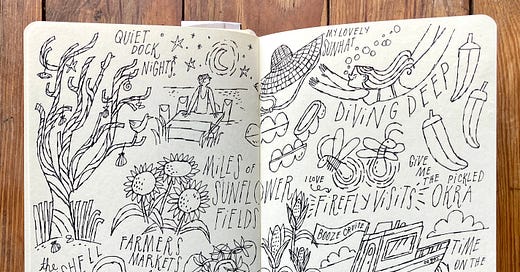 QUIET
DOCK
NIGHTS
MILES OF
SUNFLOWER
FIELDS
FARMERS
MARKETS
the SHELL
MY LOVELY
SUNHAT
DIVING DEEP
I LOVE
FIREFLY VISITS
GIVE
ME
THE PICKLED
OKRA
BOOZE CRUISE
TIME
ON THE